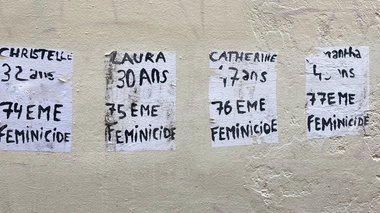 CHRISTELLE
32 ans
74 EME
FEMINICIDE
LAURA
30 ANS
75 EME
FEMINICIDE
CATHERINE
47 ans
76 EME
FEMINICIDE
ans
77 EME
FEMINICIDE